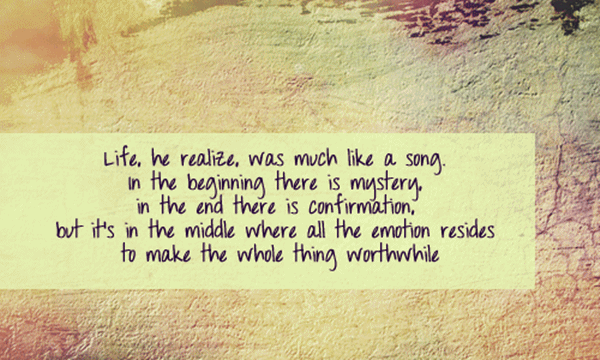 Life, he realize, was much like a song.
In the beginning there is mystery,
in the end there is confirmation,
but it's in the middle where all the emotion resides
to make the whole thing worthwhile